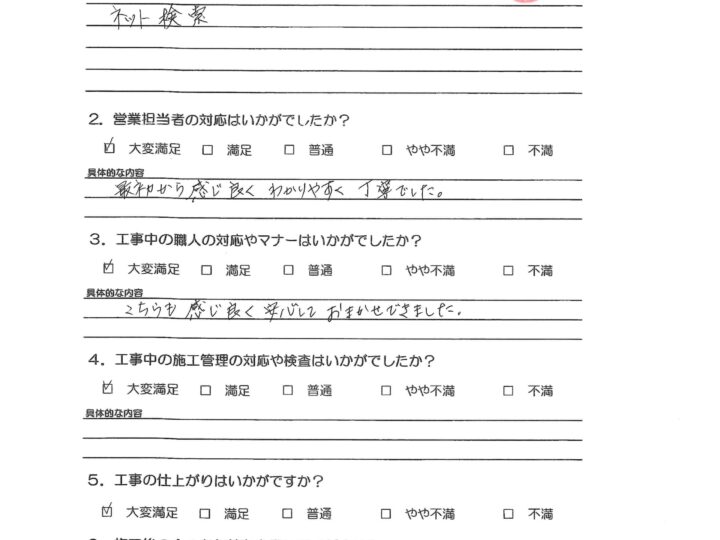 ネット検索
2. 営業担当者の対応はいかがでしたか?
☑ 大変満足 □ 満足 □ 普通 □ やや不満 □ 不満
具体的な内容
最初から感じ良く わかりやすく 丁寧でした。
3. 工事中の職人の対応やマナーはいかがでしたか?
☑ 大変満足 □ 満足 □ 普通 □ やや不満 □ 不満
具体的な内容
こちらも 感じ良く 安心して おまかせできました。
4. 工事中の施工管理の対応や検査はいかがでしたか?
☑ 大変満足 □ 満足 □ 普通 □ やや不満 □ 不満
具体的な内容
5. 工事の仕上がりはいかがですか?
☑ 大変満足 □ 満足 □ 普通 □ やや不満 □ 不満